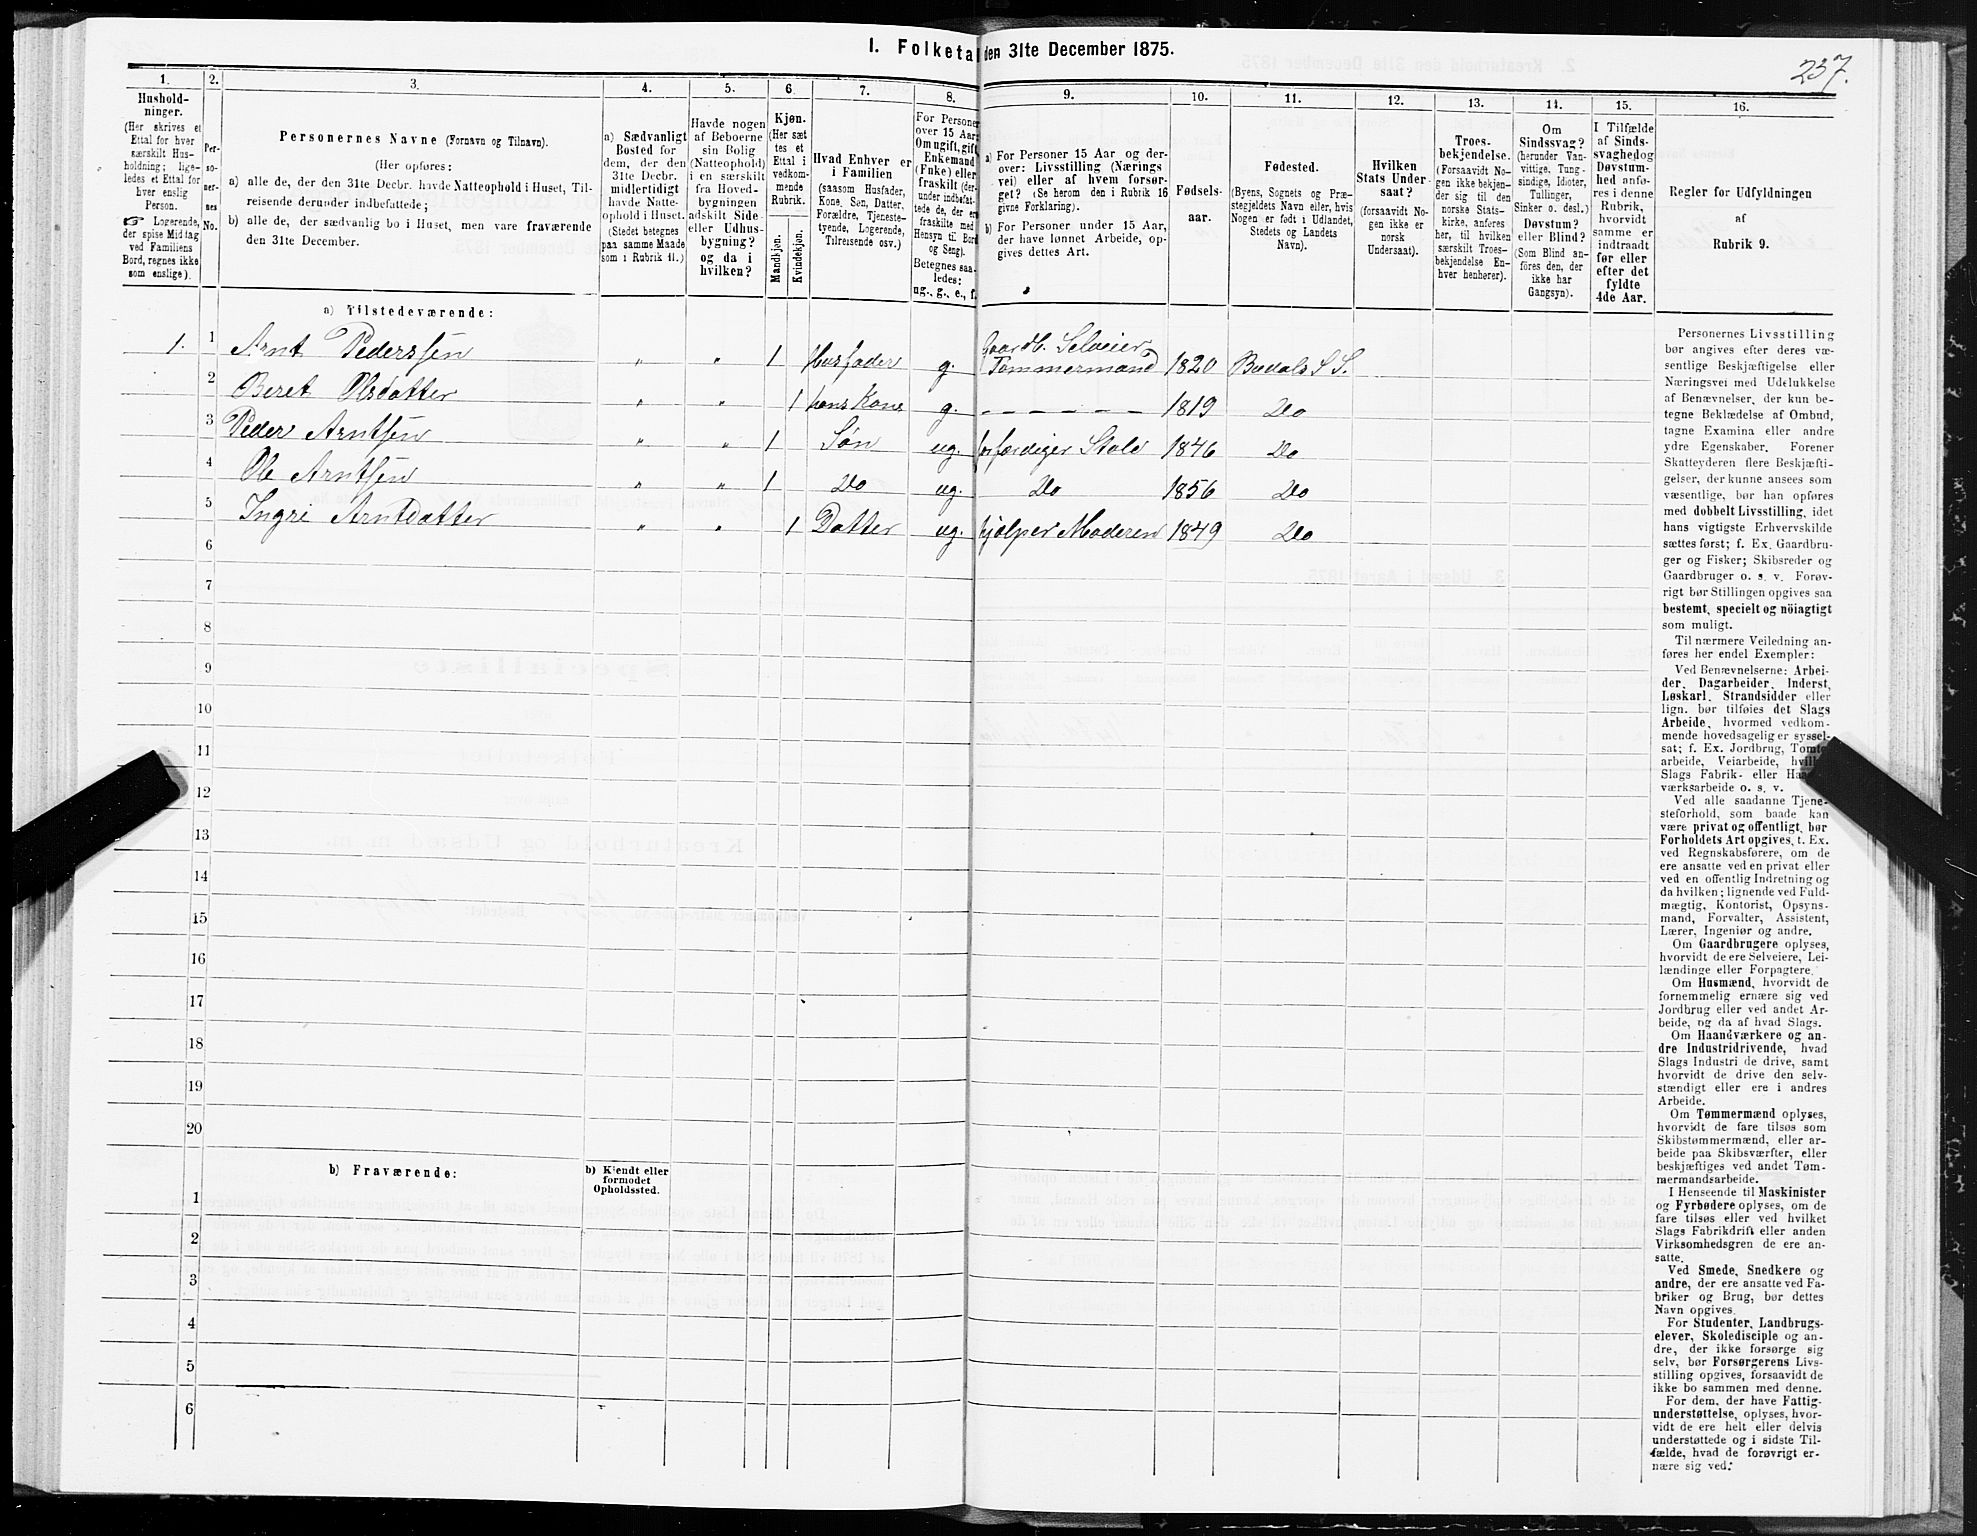 I. Folketal den 31te December 1875.
237.
1. 2. 3. 4. 5. 6. 7. 8. 9. 10. 11. 12. 13. 14. 15. 16.
Hushold-
ninger.
(Her skrives et
Ettal for hver
særskilt Hus-
holdning; lige-
ledes et Ettal for
hver enslig
Person.
☞ Logerende,
der spise Middag
ved Familiens
Bord, regnes ikke
som enslige).
Per-
so-
ner-
nes
No.
Personernes Navne (Fornavn og Tilnavn).
(Her opføres:
a) alle de, der den 31te Decbr. havde Natteophold i Huset, Til-
reisende derunder indbefattede;
b) alle de, der sædvanlig bo i Huset, men vare fraværende
den 31te December.
a) Sædvanligt
Bosted for
dem, der den
31te Decbr.
midlertidigt
havde Natte-
ophold i Huset.
(Stedet betegnes
paa samme Maade
som i Rubrik 11.)
Havde nogen
af Beboerne
sin Bolig
(Natteophold)
i en særskilt
fra Hoved-
bygningen
adskilt Side-
eller Udhus-
bygning?
og da i
hvilken?
Kjøn.
(Her sæt
tes et
Ettal i
vedkom-
mende
Rubrik.
Mandkjøn.
Kvindekjøn.
Hvad Enhver er
i Familien
(saasom Husfader,
Kone, Søn, Datter,
Forældre, Tjeneste-
tyende, Logerende,
Tilreisende osv.)
For Personer
over 15 Aar:
Om ugift, gift,
Enkemand
(Enke) eller
fraskilt (der-
under indbefat-
tede de, der ere
fraskilte med
Hensyn til Bord
og Seng).
Betegnes saa-
ledes:
ug., g., e., f.
a) For Personer 15 Aar og der-
over: Livsstilling (Nærings
vei) eller af hvem forsør-
get? (Se herom den i Rubrik 16
givne Forklaring).
b) For Personer under 15 Aar,
der have lønnet Arbeide, op-
gives dettes Art.
Fødsels-
aar.
Fødested.
(Byens, Sognets og Præ-
stegjeldets Navn eller, hvis
Nogen er født i Udlandet,
Stedets og Landets
Navn).
Hvilken
Stats Under-
saat?
(forsaavidt No-
gen ikke er
norsk
Undersaat).
Troes-
bekjendelse.
(Forsaavidt No-
gen ikke bekjen-
der sig til den
norske Stats-
kirke, anføres
her, til hvilken
særskilt Troes-
bekjendelse En-
hver henhører).
Om
Sindssvag?
(herunder Van-
vittige, Tung-
sindige, Idioter,
Tullinger,
Sinker o. desl.)
Døvstum?
eller Blind?
(Som Blind an-
føres den, der
ikke har
Gangsyn).
I Tilfælde
af Sinds-
svaghed og
Døvstum-
hed anfø-
res i denne
Rubrik,
hvorvidt
samme er
indtraadt
før eller
efter det
fyldte
4de Aar.
Regler for Udfyldningen
af
Rubrik 9.
a) Tilstedeværende:
1. 1 Arnt Pederssen „ „ 1 Husfader g. Gaardb. Selveier Tømmermand 1820 Budals S S.
2 Beret Olsdatter „ „ 1 hans Kone g. – – – – – – 1819 Do
3 Peder Arntsen „ „ 1 Søn ug. forfærdiger Stole 1846 Do
4 Ole Arntsen „ „ 1 Do ug. Do 1856 Do
5 Ingri Arntdatter „ „ 1 Datter ug. hjælper Moderen 1849 Do
6
7
8
9
10
11
12
13
14
15
16
17
18
19
20
b) Fraværende:
b) Kjendt eller
formodet
Opholdssted.
1
2
3
4
5
6
Personernes Livsstilling
bør angives efter deres væ-
sentlige Beskjæftigelse eller
Næringsvei med Udelukkelse
af Benævnelser, der kun be-
tegne Beklædelse af Ombud,
tagne Examina eller andre
ydre Egenskaber. Forener
Skatteyderen flere Beskjæfti-
gelser, der kunne ansees som
væsentlige, bør han opføres
med dobbelt Livsstilling, idet
hans vigtigste Erhvervskilde
sættes først; f. Ex. Gaardbru-
ger og Fisker; Skibsreder og
Gaardbruger o. s. v. Forøv-
rigt bør Stillingen opgives saa
bestemt, specielt og nöiagtigt
som muligt.
Til nærmere Veiledning an-
føres her endel Exempler:
Ved Benævnelserne: Arbei-
der, Dagarbeider, Inderst,
Løskarl, Strandsidder eller
lign. bør tilføies det Slags
Arbeide, hvormed vedkom-
mende hovedsagelig er syssel-
sat; f. Ex. Jordbrug, Tomte-
arbeide, Veiarbeide, hvilket
Slags Fabrik- eller Haand-
værksarbeide o. s. v.
Ved alle saadanne Tjene-
steforhold, som baade kan
være privat og offentligt, bør
Forholdets Art opgives, t. Ex.
ved Regnskabsførere, om de
ere ansatte ved en privat eller
ved en offentlig Indretning og
da hvilken; lignende ved Fuld-
mægtig, Kontorist, Opsyns-
mand, Forvalter, Assistent,
Lærer, Ingeniør og andre.
Om Gaardbrugere oplyses,
hvorvidt de ere Selveiere, Lei-
lændinge eller Forpagtere.
Om Husmænd, hvorvidt de
fornemmelig ernære sig ved
Jordbrug eller ved andet Ar-
beide, og da af hvad Slags.
Om Haandværkere og an-
dre Industridrivende, hvad
Slags Industri de drive, samt
hvorvidt de drive den selv-
stændigt eller ere i andres
Arbeide.
Om Tømmermænd oplyses,
hvorvidt de fare tilsøs som
Skibstømmermænd, eller ar-
beide paa Skibsværfter, eller
beskjæftiges ved andet Tøm-
mermandsarbeide.
I Henseende til Maskinister
og Fyrbødere oplyses, om de
fare tilsøs eller ved hvilket
Slags Fabrikdrift eller anden
Virksomhedsgren de ere an-
satte.
Ved Smede, Snedkere og
andre, der ere ansatte ved Fa-
briker og Brug, bør dettes
Navn opgives.
For Studenter, Landbrugs-
elever, Skoledisciple og an-
dre, der ikke forsørge sig
selv, bør Forsørgerens Livs-
stilling opgives, forsaavidt de
ikke bo sammen med denne.
For dem, der have Fattig-
understøttelse, oplyses, hvor-
vidt de ere helt eller delvis
understøttede og i sidste Til-
fælde, hvad de forøvrigt er-
nære sig ved.